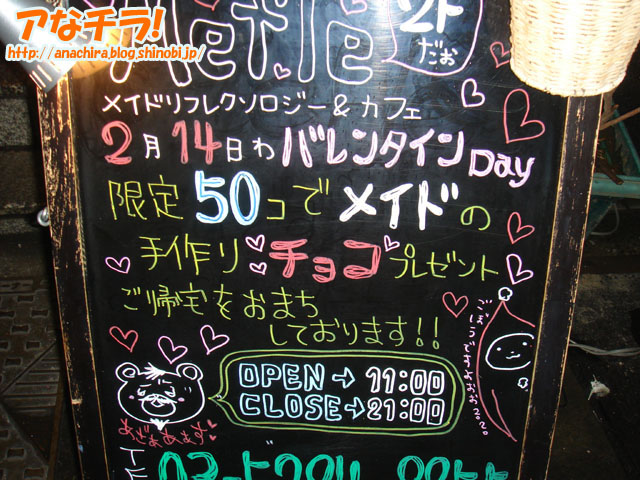 アなチラ!
http://anachira.blog.shinobi.jp/
だお
メイドリフレクソロジー&カフェ
2月14日わバレンタインDay
限定50コでメイドの
手作りチョコプレゼント
ご帰宅をおまち
しております!!
OPEN→11:00
CLOSE→21:00